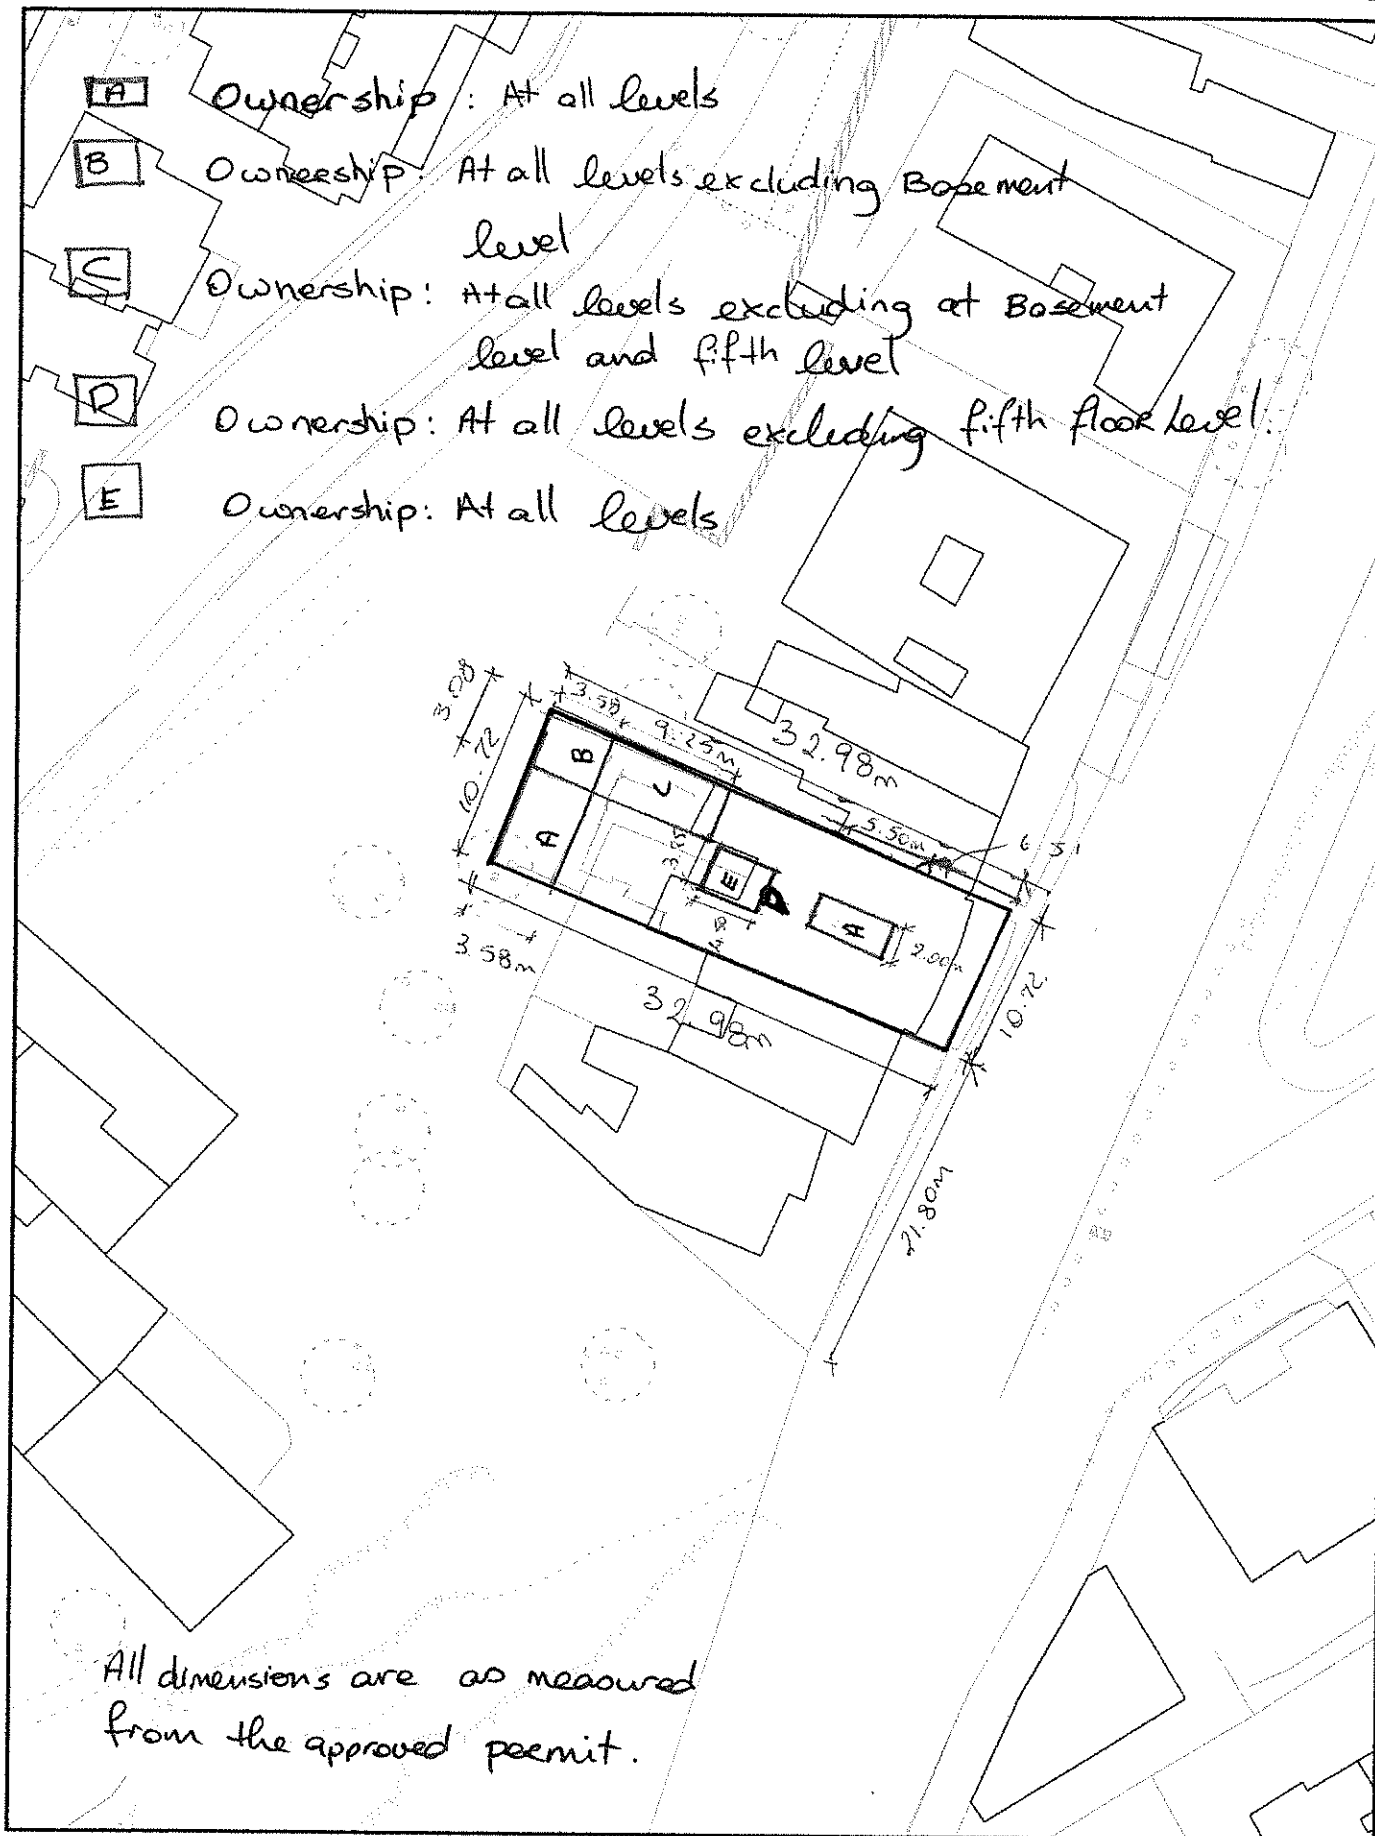 A Ownership : At all levels
B Owneeship: At all levels excluding Basement
level
C Ownership: At all levels excluding at Basement
level and fifth level
D Ownership: At all levels excluding fifth floor Level.
E Ownership: At all levels
3.08
10.72
3.58
9.25m
32.98m
B
C
A
3.85
E
D
5.50m
A
2.00m
3.58m
32.98m
10.72.
21.80m
All dimensions are as measured
from the approved peemit.